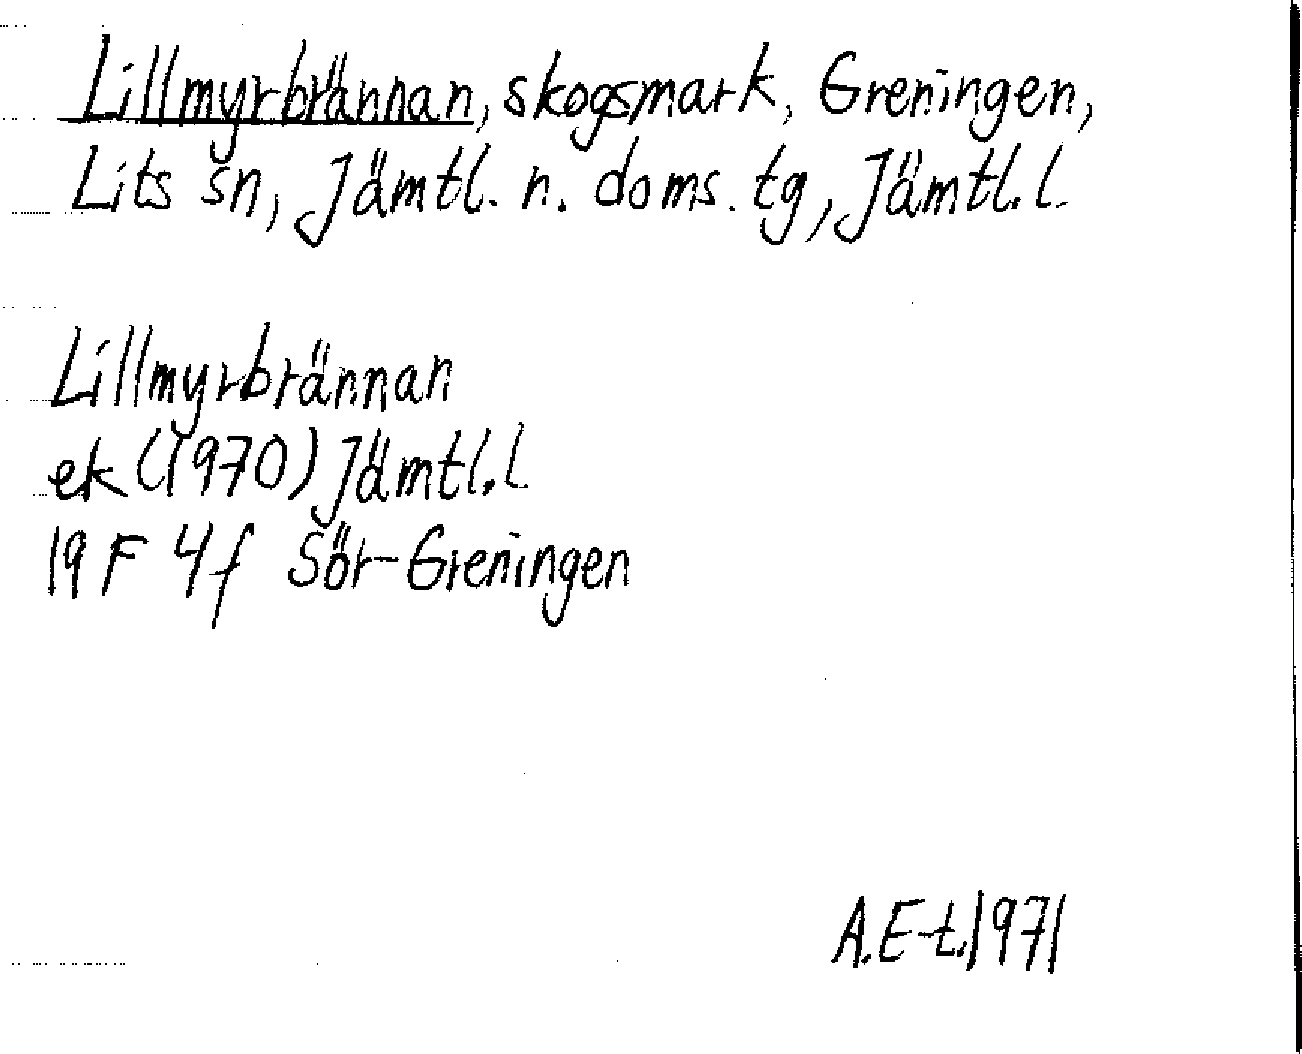 Lillmyrbrännan, skogsmark, Greningen,
Lits sn, Jämtl. n. doms. tg, Jämtl. l.
Lillmyrbrännan
ek (1970) Jämtl. l
19 F 4f Sör-Greningen
A.E-t. 1971